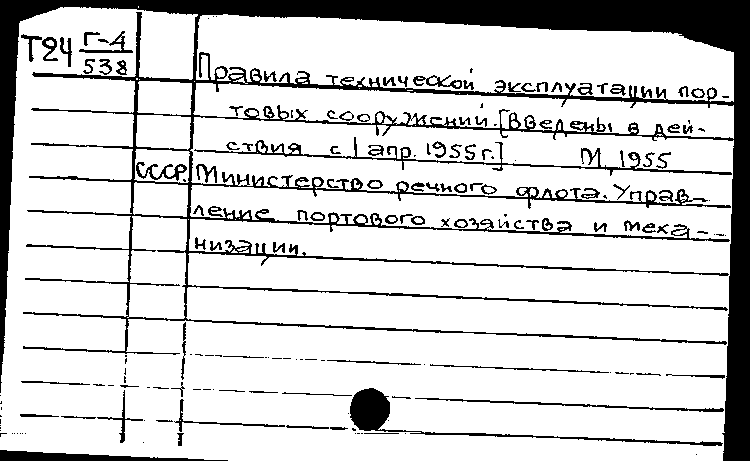 Т24 Г-4
538
Правила технической эксплуатации пор-
товых сооружений. [Введены в дей-
ствия с 1 апр. 1955 г.] М, 1955
СССР. Министерство речного флота. Управ-
ление портового хозяйства и меха-
низации.